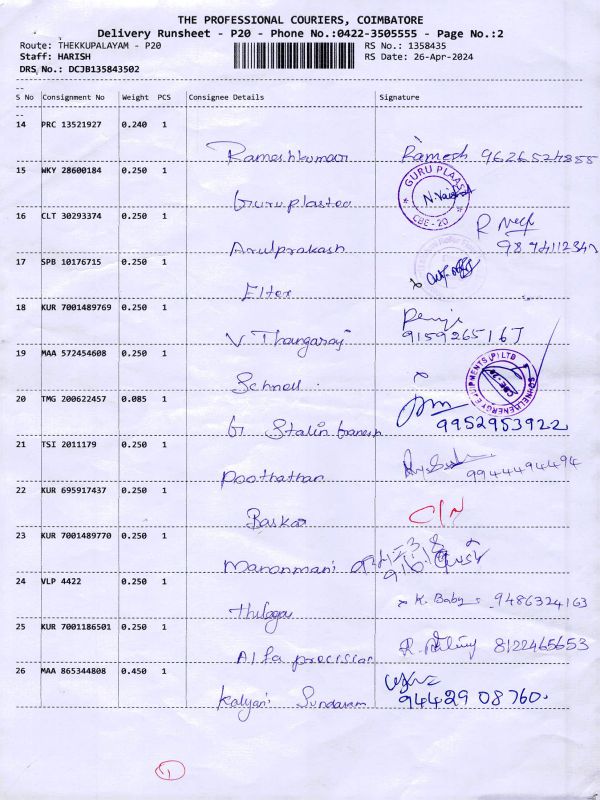 THE PROFESSIONAL COURIERS, COIMBATORE
Delivery Runsheet - P20 - Phone No.:0422-3505555 - Page No.:2
Route: THEKKUPALAYAM - P20 RS No.: 1358435
Staff: HARISH RS Date: 26-Apr-2024
DRS No.: DCJB135843502
S No Consignment No Weight PCS Consignee Details Signature
14 PRC 13521927 0.240 1
Rameshkumar Ramesh 9626524855
15 WKY 28600184 0.250 1
GURU PLAAST
Guruplastec
CBE - 20
16 CLT 30293374 0.250 1
Arulprakash
17 SPB 10176715 0.250 1
Elter
18 KUR 7001489769 0.250 1
V Thangaraj
19 MAA 572454608 0.250 1
Schnell
20 TMG 200622457 0.085 1
G. Stalin Ganesh 9952953922
21 TSI 2011179 0.250 1
Poothathan 9944494494
22 KUR 695917437 0.250 1
Baskar
23 KUR 7001489770 0.250 1
Manonmani
24 VLP 4422 0.250 1
Thilaga K. Baby 9486324163
25 KUR 7001186501 0.250 1
Alfa precision 8122465653
26 MAA 865344808 0.450 1
Kalyani Sundaram 94429 08760